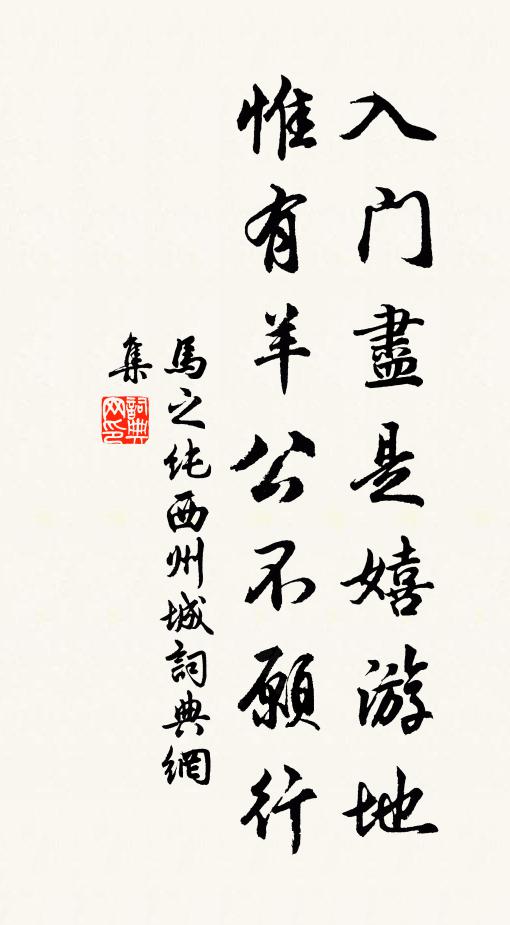 入门盡是嬉游地
惟有羊公不願行
馬之純西州城詞典網
集
詞典
网印